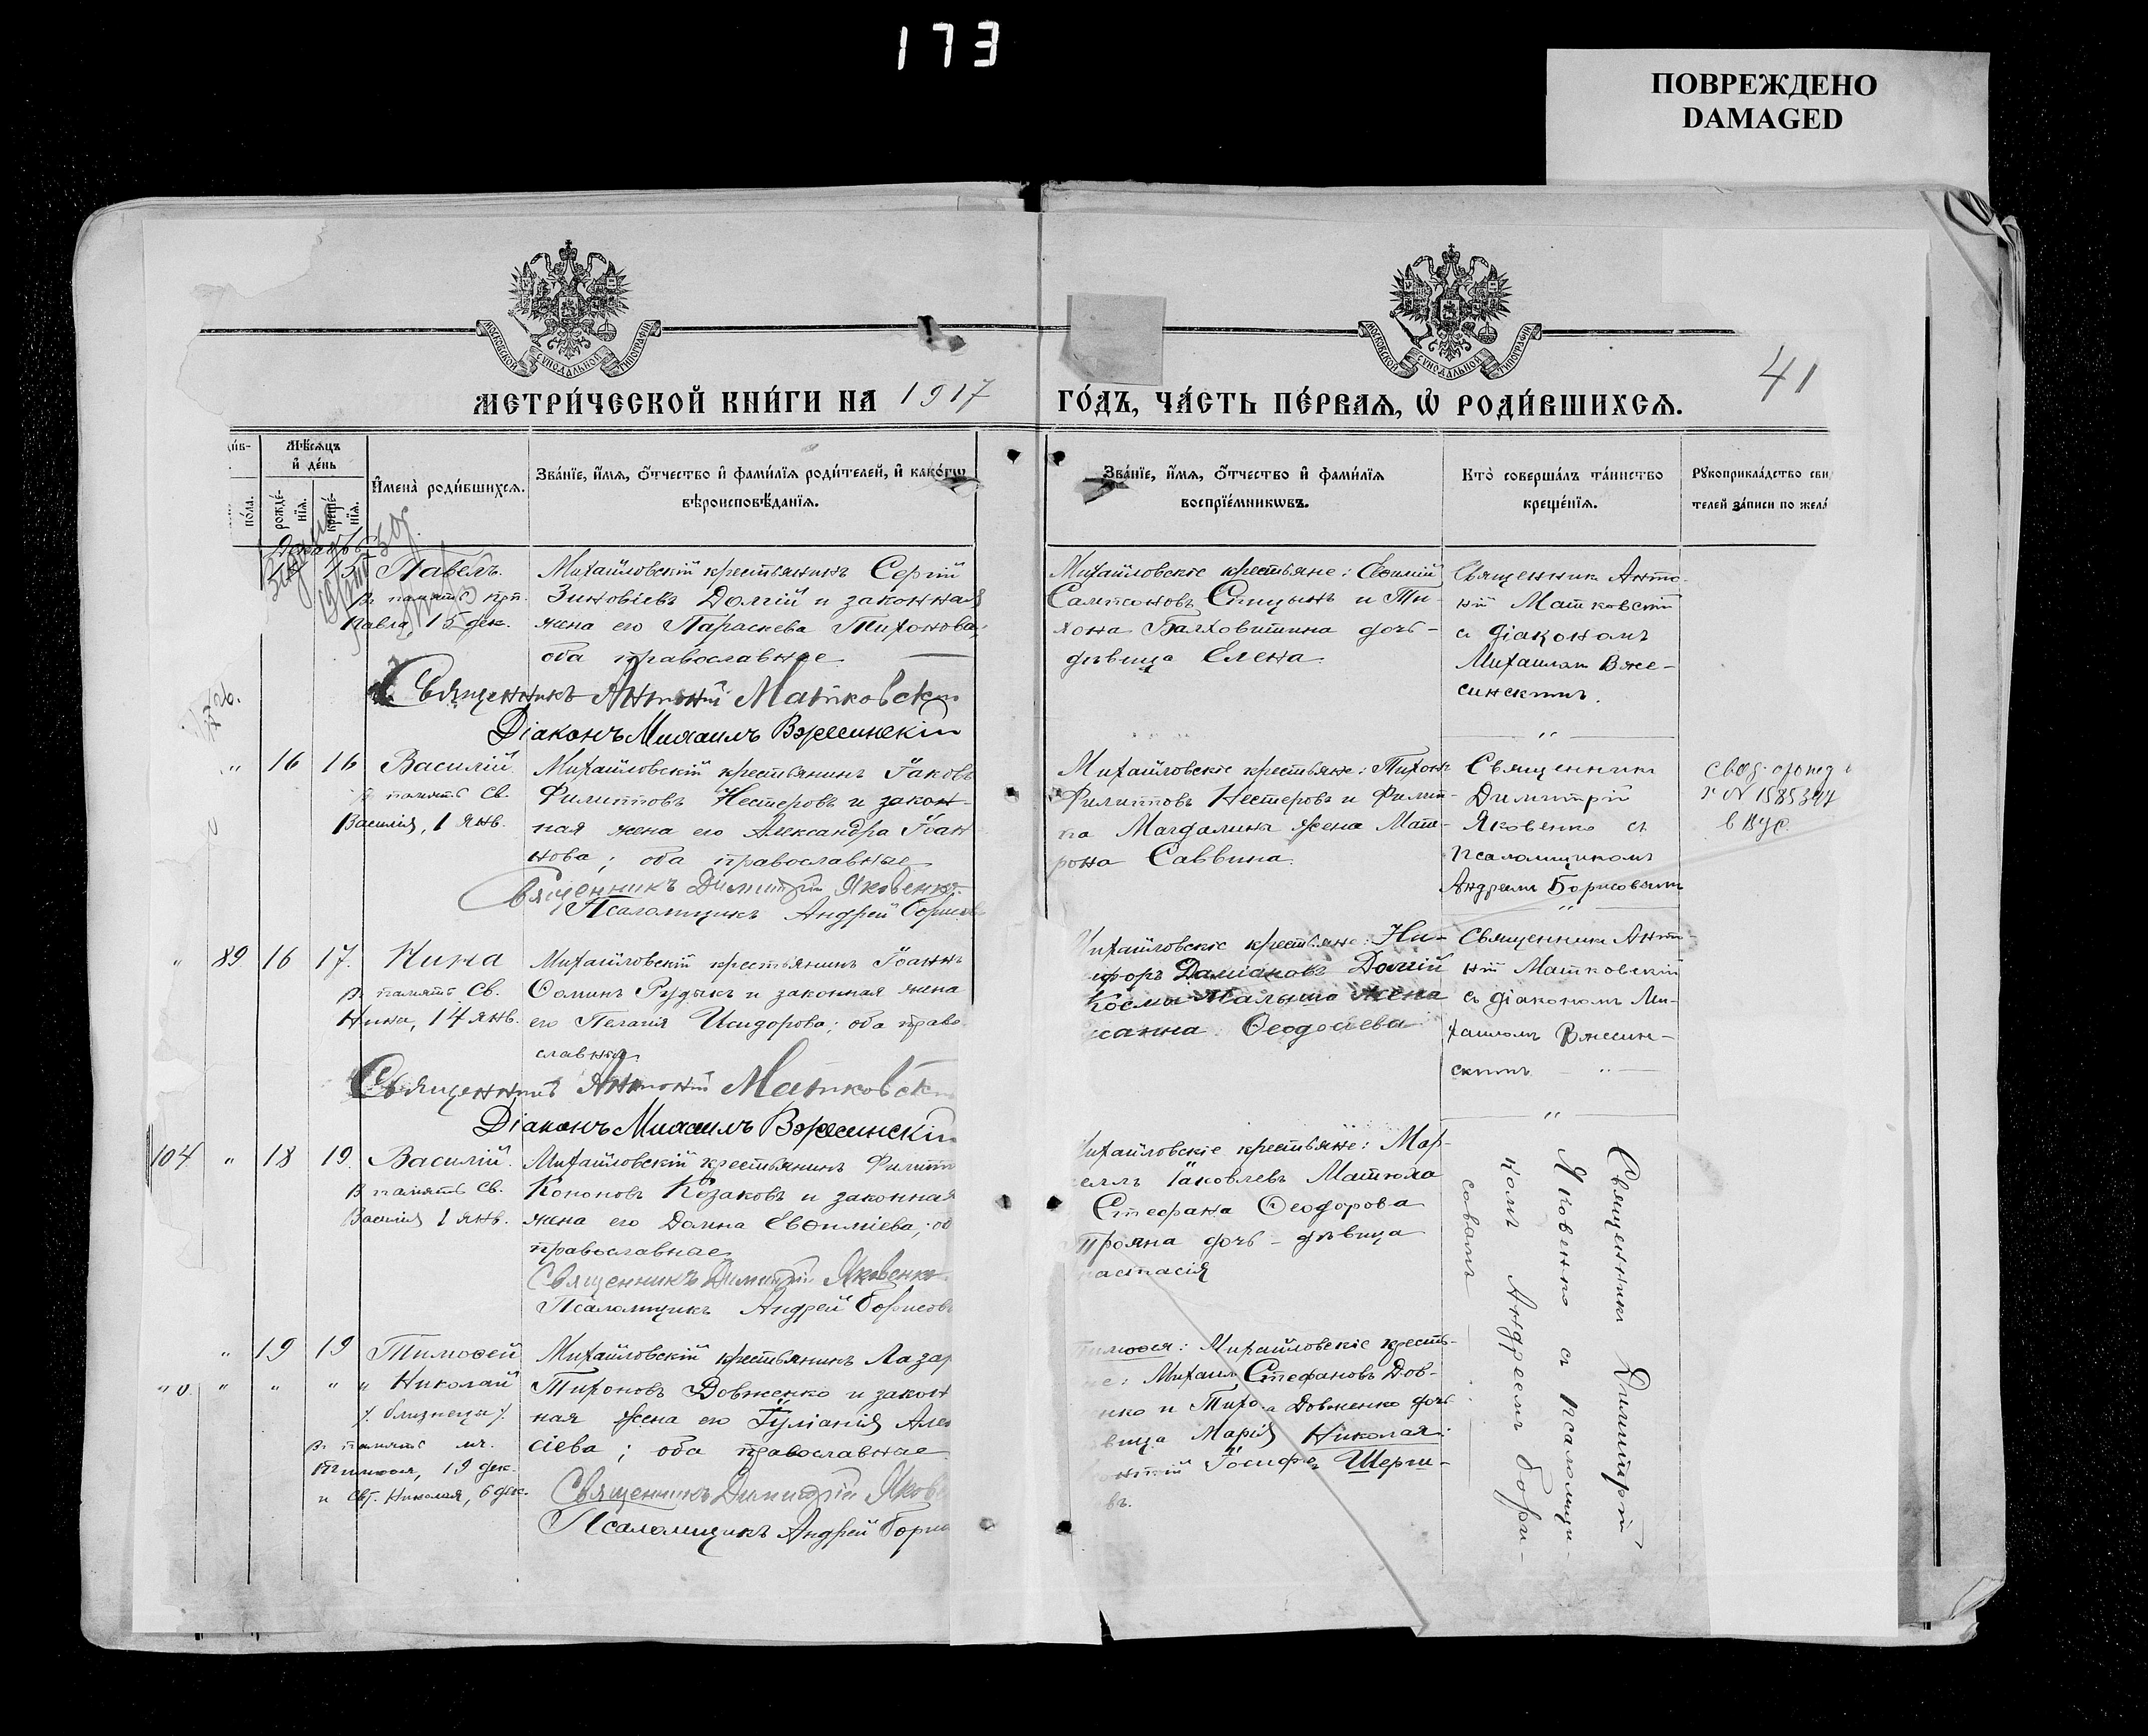 173
ПОВРЕЖДЕНО
DAMAGED
МОСКОВСКОЙ СѴНОДАЛЬНОЙ ТИПОГРАФІИ
МОСКОВСКОЙ СѴНОДАЛЬНОЙ ТИПОГРАФІИ
41
МЕТРИ́ЧЕСКОЙ КНИ́ГИ НА 1917
ГО́ДЪ, ЧА́СТЬ ПЕ́РВАЯ, Ѡ РОДИ́ВШИХСЯ.
Мѣсяцъ
и де́нь
пола.
рожде́-
нія.
креще́-
нія.
Имена̀ роди́вшихся.
Зва́ніе, и́мя, о́тчество и фами́лія роди́телей, и како́гѡ
вѣроисповѣ́данія.
Зва́ніе, и́мя, о́тчество и фами́лія
воспріе́мникѡвъ.
Кто̀ соверша́лъ та́инство
креще́нія.
Рукоприкла́дство сви
телей за́писи по жела
Павелъ.
въ память прп.
Павла, 15 дек.
Михайловскій крестьянинъ Сергій
Зиновіевъ Долгій и законная
жена его Параскева Тихонова;
оба православные
Священникъ Антоній Матковскі
Діаконъ Михаилъ Вржесинскій
Михайловскіе крестьяне: Евѳимій
Сампсоновъ Спицынъ и Ти-
хона дочь-
дѣвица Елена.
Священник Анто-
ній Матковскій
съ діакономъ
Михаилом Вже-
синскимъ.
" 16 16 Василій.
въ память св.
Василія, 1 янв.
Михайловскій крестьянинъ Іаковъ
Филипповъ Нестеровъ и закон-
ная жена его Александра Іоан
нова; оба православные
Священникъ Димитрій Яковенко.
Псаломщикъ Андрей Борисов
Михайловскіе крестьяне: Тихонъ
Филипповъ Нестеровъ и Филип-
па Магдалина жена Мат-
рона Саввина.
Священникъ
Димитрій
Яковенко съ
псаломщикомъ
Андреем Борисовым
N 1585344
" 89 16 17. Нина
въ память св.
Нины, 14 янв.
Михайловскій крестьянинъ Іоаннъ
Ѳоминъ Рудыкъ и законная жена
его Пелагія Исидорова; оба право-
славные
Священникъ Антоній Матковск
Діаконъ Михаилъ Вржесинскій
ихайловскіе крестьяне: Ни-
ифоръ Даміановъ Долгій
Космы Малыша жена
санна Ѳеодосіева
Священник Анто-
ній Матковскій
съ діакономъ Ми-
хаиломъ Вжесин-
скимъ
104 " 18 19. Василій.
въ память св.
Василія 1 янв.
Михайловскій крестьянинъ Филипп
Кононовъ Козаковъ и законная
жена его Домна Евѳиміева; об
православные
Священникъ Димитрій Яковенко
Псаломщикъ Андрей Борисов
ихайловскіе крестьяне: Мар-
келлъ Іаковлевъ Матюха
Стефана Ѳеодорова
Трояна дочь-дѣвица
настасія
Священникъ Димитрій
Яковенко съ псаломщи-
комъ Андреемъ Бори-
совымъ
" 19 19 Тимоѳей
" " " " Николай
/. близнецы /.
въ память мч.
Тимоѳея, 19 дек.
и свт. Николая, 6 дек.
Михайловскій крестьянинъ Лазар
Тихоновъ Довженко и закон
ная жена его Іуліанія Алек
сіева; оба православные
Священникъ Димитрій Якове
Псаломщикъ Андрей Борис
Тимоѳея: Михайловскіе кресть-
не: Михаил Стефановъ Дов-
нко и Тихона Довженко дочь
вица Марія Николая:
Іосифов Шерш-
въ.